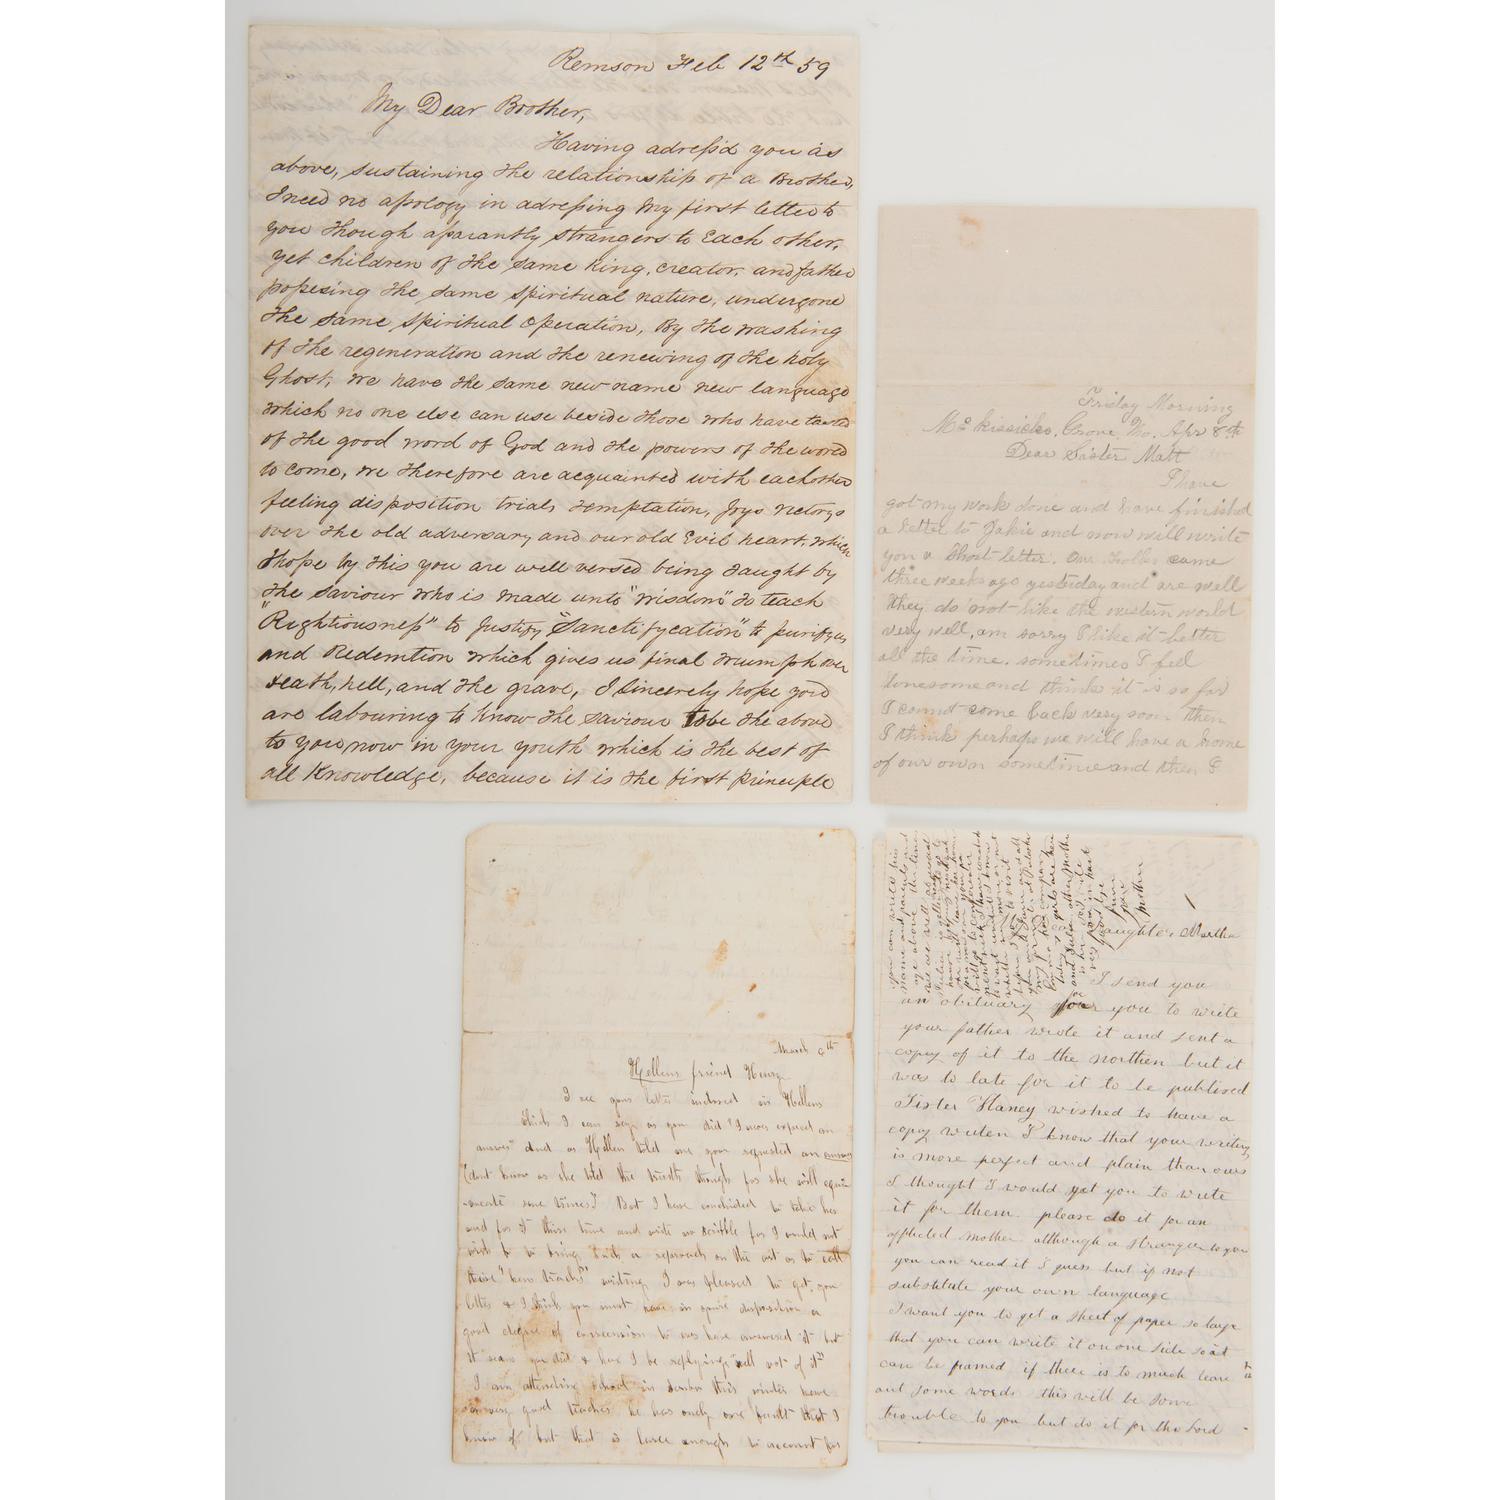 Remson Feb 12th 59
My Dear Brother,
Having adress'd you as
above, sustaining the relationship of a Brother,
I need no apology in adressing my first letter to
you though aparantly strangers to Each other,
yet children of the same king, creator, and father
possesing the same spiritual nature, undergone
the same spiritual operation, By the washing
of the regeneration and the renewing of the holy
Ghost, we have the same new name new language
which no one else can use beside those who have tasted
of the good word of God and the powers of the world
to come, we therefore are acquainted with eachother
feeling disposition trials temptation, Joys victorys
over the old adversary and our old Evil heart, which
I hope by this you are well versed being taught by
the saviour who is made unto "wisdom" to teach
"Rightiousness" to Justify "Sanctifycation" to purify us
and Redemtion which gives us final triumph over
death, hell, and the grave, I sincerely hope you
are labouring to know the saviour to be the above
to you now in your youth which is the best of
all Knowledge, because it is the first principle
Friday Morning
Grove, Mo. Apr 8th
Dear Sister Matt
I have
got my work done and have finished
a letter to Jakie and now will write
you a short letter. Our folks came
three weeks ago yesterday and are well
they do not like the western world
very well, am sorry I like it better
all the time. sometimes I feel
lonesome and think it is so far
I cannot come back very soon then
I think perhaps we will have a home
of our own sometime and then I
March 9th
Hellens friend Henry
I see your letter inclosed in Hellens
which I can say as you did "I never expect an
answer" and as Hellen told me you requested an answer
(dont know as she told the truth though for she will
some times) But I have concluded to take her
word for it this time and write a scribble for I would not
wish to bring such a reproach on the art as to call
these "hen tracks" writing I was pleased to get your
letter & I think you must have in your disposition a
good degree of to have answered it but
it seems you did & here I be replying "well not of it"
I am attending school in this winter have
a very good teacher he has only one fault that I
know of but that is large enough to account for
you can write his
name and parents and
age above the lines
good bye
from
your
Mother
Daughter Martha
I send you
an obituary for you to write
your father wrote it and sent a
copy of it to the northen but it
was to late for it to be publised
Sister Haney wished to have a
copy writen I know that your writing
is more perfect and plain than ours
I thought I would get you to write
it for them please do it for an
afflicted mother although a stranger to you
you can read it I guess but if not
substitute your own language
I want you to get a sheet of paper so large
that you can write it on one side so it
can be framed if there is to much leave
out some words this will be some
trouble to you but do it for the Lord